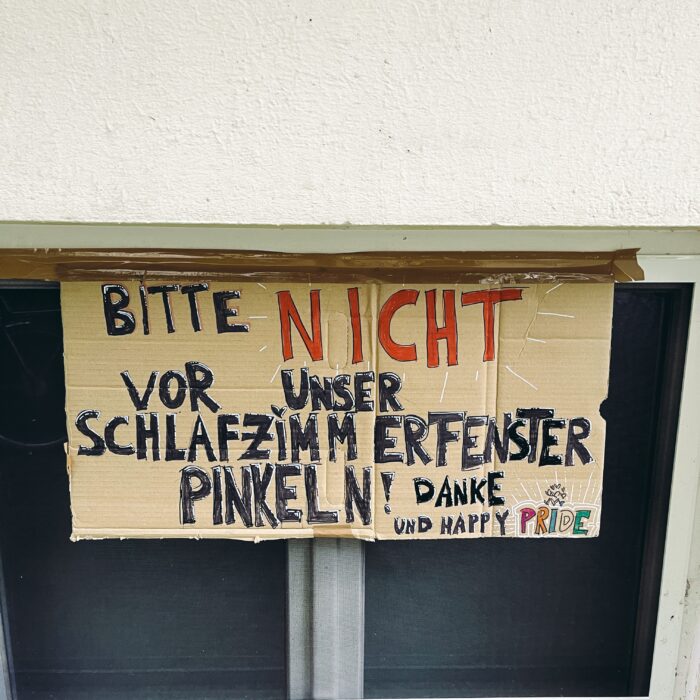 BITTE NICHT
VOR UNSER
SCHLAFZIMMERFENSTER
PINKELN! DANKE
UND HAPPY PRIDE